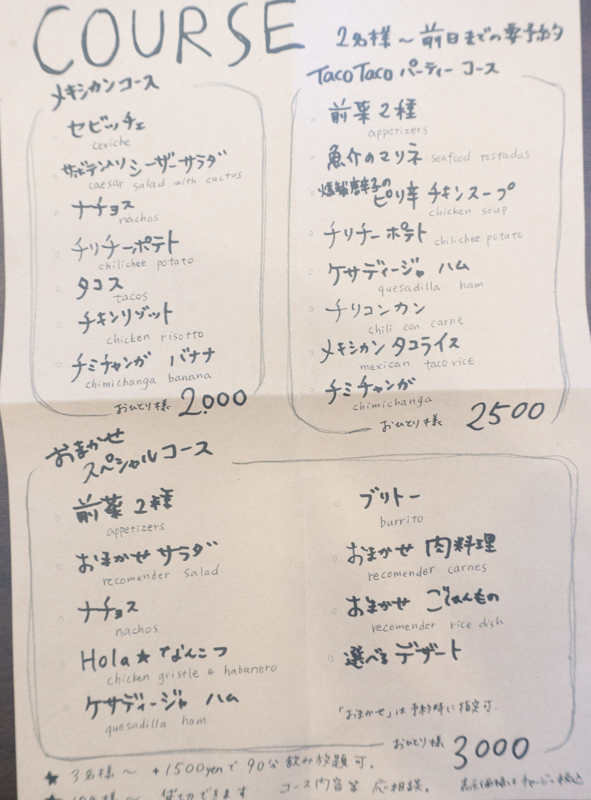 COURSE
2名様～前日までの要予約
メキシカンコース
セビッチェ
ceviche
サボテン入り シーザーサラダ
caesar salad with cuctus
ナチョス
nachos
チリチーポテト
chilichee potato
タコス
tacos
チキンリゾット
chicken risotto
チミチャンガ バナナ
chimichanga banana
おひとり様 2.000
TacoTaco パーティー コース
前菜2種
appetizers
魚介のマリネ seafood tostadas
燻製唐辛子の ピリ辛 チキンスープ
chicken soup
チリチーポテト chilichee potato
ケサディージャ ハム
quesadilla ham
チリコンカン
chili con carne
メキシカン タコライス
mexican taco rice
チミチャンガ
chimichanga
おひとり様 2500
おまかせ
スペシャルコース
前菜2種
appetizers
おまかせ サラダ
recomender salad
ナチョス
nachos
Hola★なんこつ
chicken gristle & habanero
ケサディージャ ハム
quesadilla ham
ブリトー
burrito
おまかせ 肉料理
recomender carnes
おまかせ ごはんもの
recomender rice dish
選べるデザート
「おまかせ」は予約時に指定可.
おひとり様 3000
★ 3名様～ +1500yenで 90分 飲み放題 可.
貸切できます コース内容等 応相談.